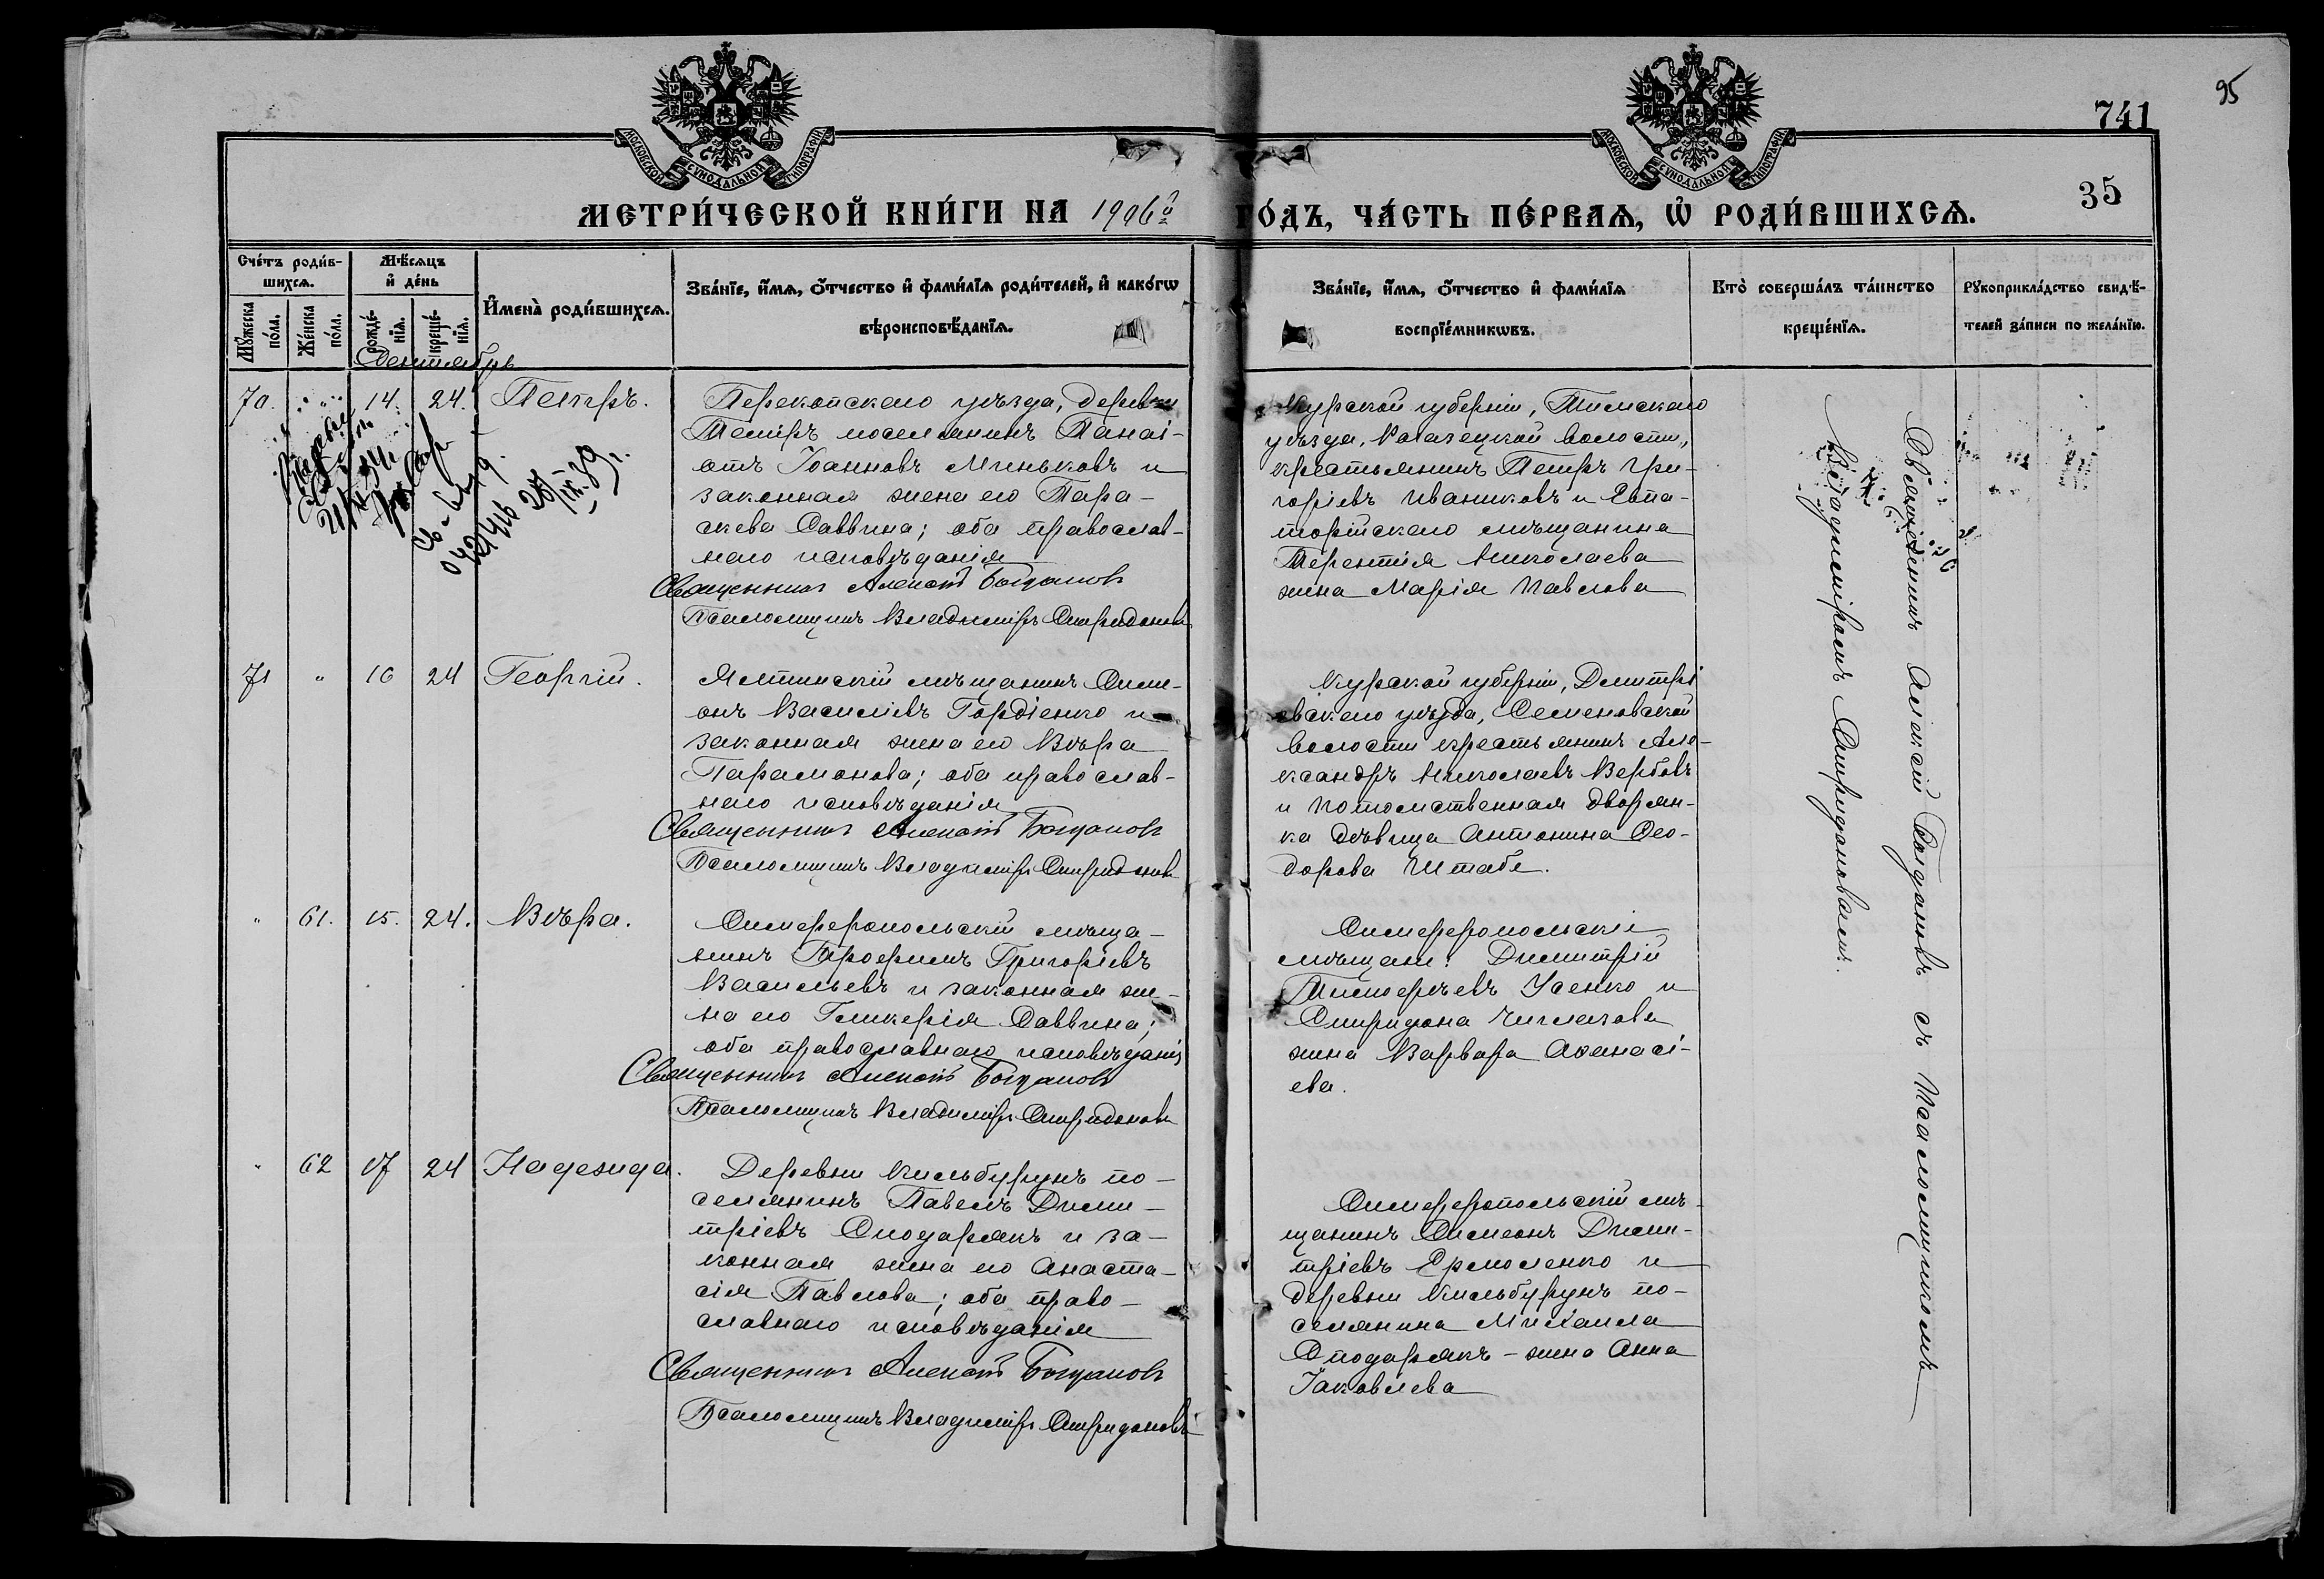 95
741
35
МОСКОВСКОЙ СУНОДАЛЬНОЙ ТИПОГРАФІИ
МОСКОВСКОЙ СУНОДАЛЬНОЙ ТИПОГРАФІИ
МЕТРИ́ЧЕСКОЙ КНИ́ГИ НА 1906й ГО́ДЪ, ЧА́СТЬ ПЕ́РВАЯ, Ѽ РОДИ́ВШИХСѦ.
Сче́тъ роди́в-
шихсѧ.
Мꙋ́жеска по́ла.
Же́нска по́ла.
Мѣ́сѧцъ
и҆ де́нь
рожде́-
нїѧ.
креще́-
нїѧ.
И҆мена̀ роди́вшихсѧ.
Зва́нїе, и҆́мѧ, ѻ҆́тчество и҆ фами́лїѧ роди́телей, и҆ како́гѡ
вѣроисповѣ́данїѧ.
Зва́нїе, и҆́мѧ, ѻ҆́тчество и҆ фами́лїѧ
воспрїе́мникѡвъ.
Кто̀ соверша́лъ та́инство
креще́нїѧ.
Рꙋкоприкла́дство свидѣ́-
телей за́писи по жела́нїю.
Сентябрь
70. " 14. 24. Петръ.
Перекопскаго уѣзда, деревни
Темиръ поселянинъ Панаі-
отъ Іоанновъ Миньковъ и
законная жена его Пара-
скева Саввина; оба православ-
наго исповѣданія
Священникъ Алексій Богдановъ
Псаломщикъ Владиміръ Спиридоновъ
Курской губерніи, Тимскаго
уѣзда, волости,
крестьянинъ Петръ Гри-
горіевъ Иваниковъ и Евпа-
торійскаго мѣщанина
Терентія Николаева
жена Марія Павлова
71 " 16 24 Георгій.
Ялтинскій мѣщанинъ Симе-
онъ Василіевъ Гордіенко и
законная жена его Вѣра
Парамонова; оба православ-
наго исповѣданія
Священникъ Алексій Богдановъ
Псаломщикъ Владиміръ Спиридоновъ
Курской губерніи, Дмитрі
евскаго уѣзда, Семеновской
волости крестьянинъ Але-
ксандръ Николаевъ Вербовъ
и потомственная дворян-
ка дѣвица Антонина Ѳео-
дорова Штабе.
" 61. 15. 24. Вѣра.
Симферопольскій мѣща-
нинъ Трофимъ Григоріевъ
Васильевъ и законная же-
на его Гликерія Саввина;
оба православнаго исповѣданія
Священникъ Алексій Богдановъ
Псаломщикъ Владиміръ Спиридоновъ
Симферопольскіе
мѣщане: Димитрій
Тимофеевъ Усенко и
Спиридона
жена Варвара Аѳанасі-
ева.
" 62 17 24 Надежда.
Деревни Кильбурунъ по-
селянинъ Павелъ Дими-
тріевъ Сподарякъ и за-
конная жена его Анаста-
сія Павлова; оба право-
славнаго исповѣданія
Священникъ Алексій Богдановъ
Псаломщикъ Владиміръ Спиридоновъ
Симферопольскій мѣ-
щанинъ Симеонъ Дими-
тріевъ Ермоленко и
деревни Кильбурунъ по-
селянина Михаила
Сподарякъ - жена Анна
Іаковлева
Священникъ Алексій Богдановъ съ Псаломщикомъ
Владиміромъ Спиридоновымъ.